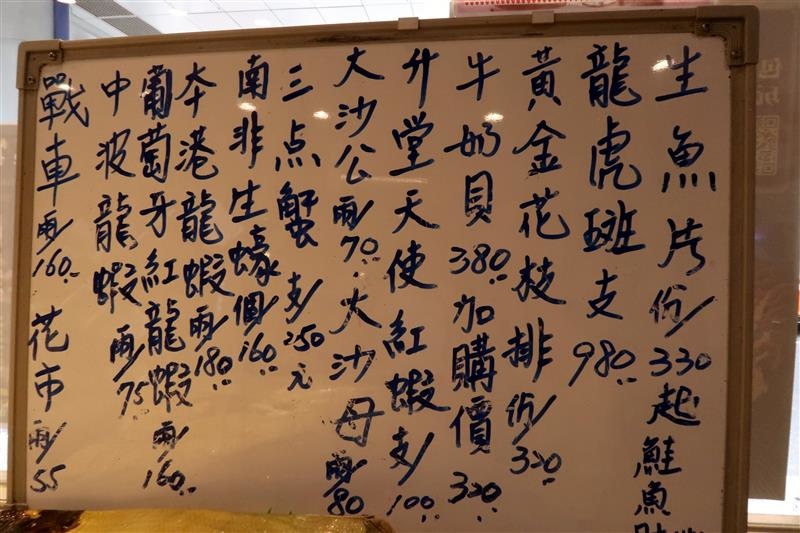 生魚片份/330起鮭魚
龍虎斑支980..
黃金花枝排份/320
牛奶貝380..加購價320..
升堂天使紅蝦支/100..
大沙公兩/70..大沙母兩/80
三点蟹支/250元
南非生蠔個/60..
本港龍蝦兩/180..
葡萄牙紅龍蝦兩/160..
中波龍蝦兩/75..
戰車兩/160..花市兩/55